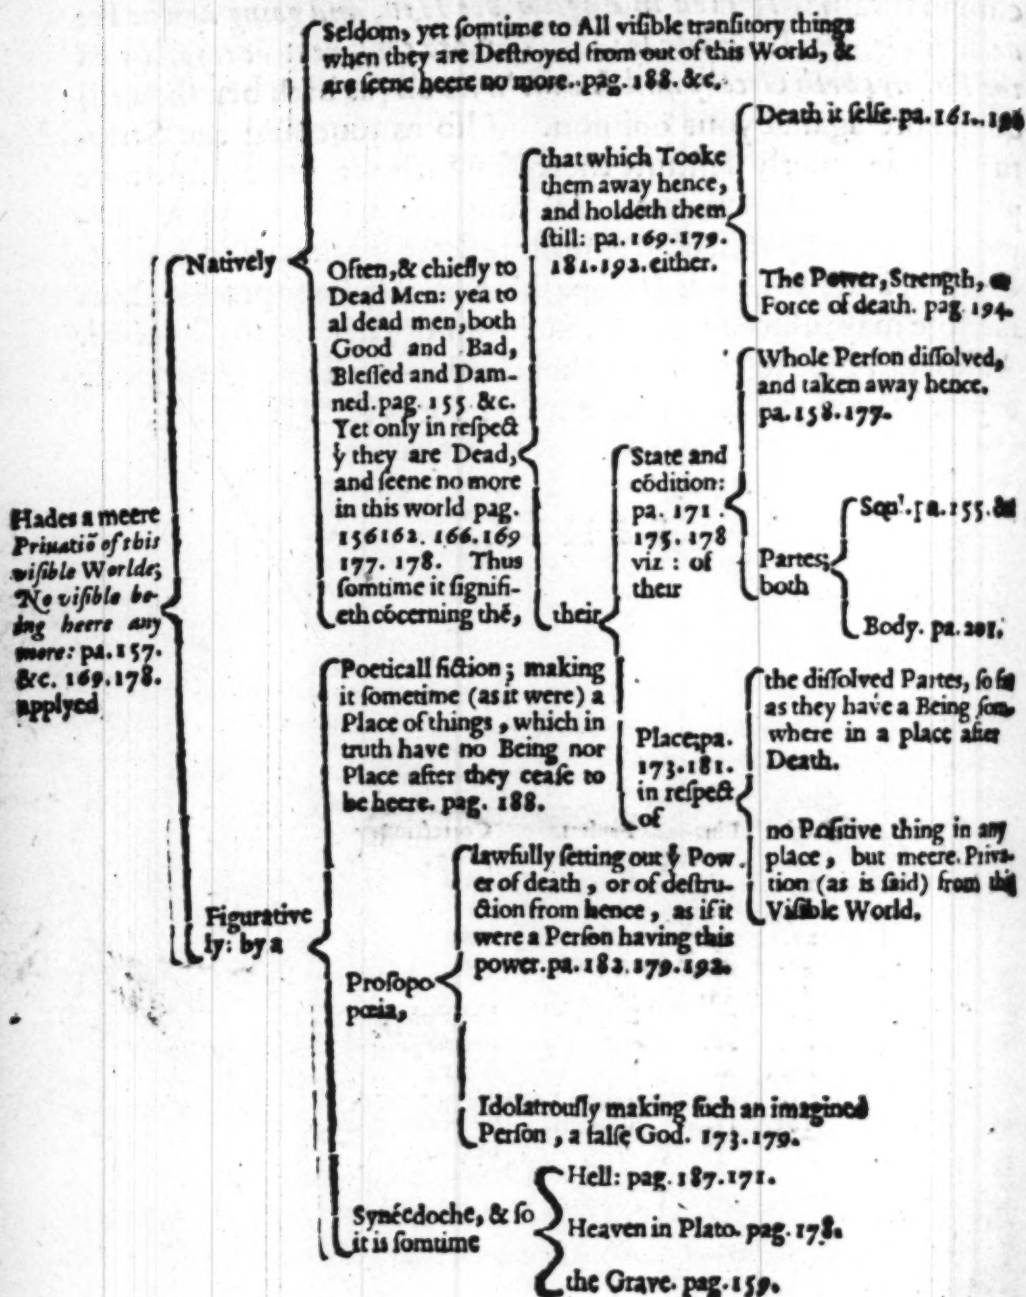 Hades a meere
Privatiõ of this
visible Worlde;
No visible be-
ing heere any
more: pa.157.
&c. 169.178.
applyed
Natively
Seldom, yet somtime to All visible transitory things
when they are Destroyed from out of this World, &
are seene heere no more. pag. 188. &c.
Often, & chiefly to
Dead Men: yea to
al dead men, both
Good and Bad,
Blessed and Dam-
ned. pag. 155 &c.
Yet only in respect
ẏ they are Dead,
and seene no more
in this world pag.
156162. 166. 169
177. 178. Thus
somtime it signifi-
eth cõcerning thẽ,
that which Tooke
them away hence,
and holdeth them
still: pa. 169. 179.
181. 192. either.
Death it selfe. pa. 161.
The Power, Strength,
Force of death. pag. 194.
their
State and
cõdition:
pa. 171.
175. 178
viz: of
their
Whole Person dissolved,
and taken away hence.
pa. 158. 177.
Partes;
both
pa. 155. &c
Body. pa. 201.
Place; pa.
173. 181.
in respect
of
the dissolved Partes, so far
as they have a Being som-
where in a place after
Death.
no Positive thing in any
place, but meere Priva-
tion (as is said) from the
Visible World.
Figurative
ly: by a
Poeticall fiction; making
it sometime (as it were) a
Place of things, which in
truth have no Being nor
Place after they cease to
be heere. pag. 188.
Prosopo
pœia,
lawfully setting out ẏ Pow
er of death, or of destru-
ction from hence, as if it
were a Person having this
power. pa. 182. 179. 192.
Idolatrously making such an imagined
Person, a false God. 173. 179.
Synécdoche, & so
it is somtime
Hell: pag. 187. 171.
Heaven in Plato. pag. 178.
the Grave. pag. 159.